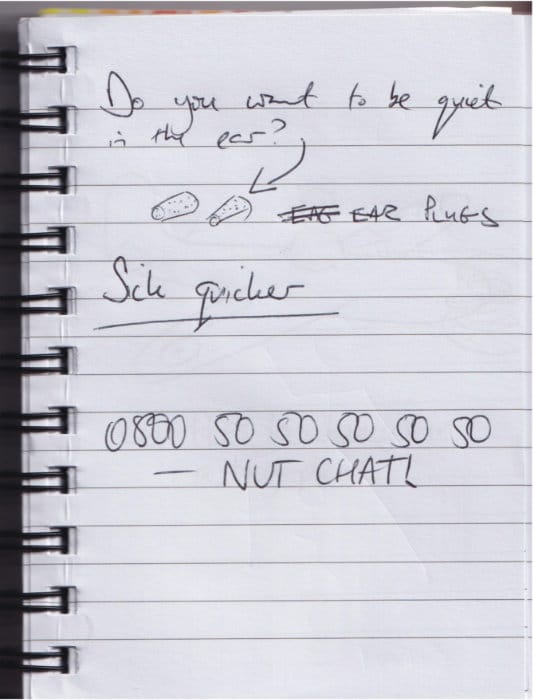 Do you want to be quiet
in the ear?
EAR PLUGS
Sick quicker
0800 50 50 50 50 50
— NUT CHAT